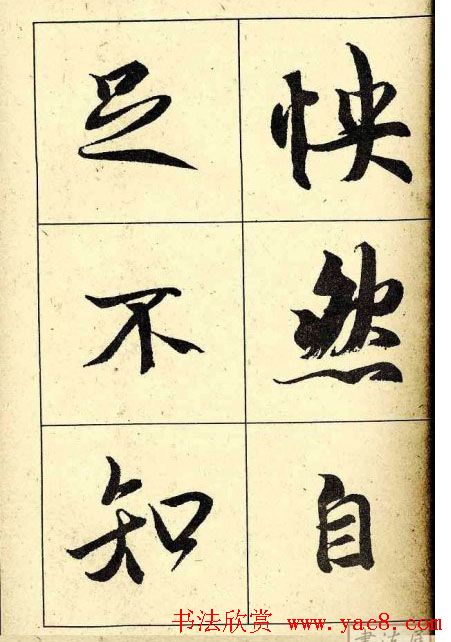 怏然自
足不知
书法欣赏 www.yac8.com